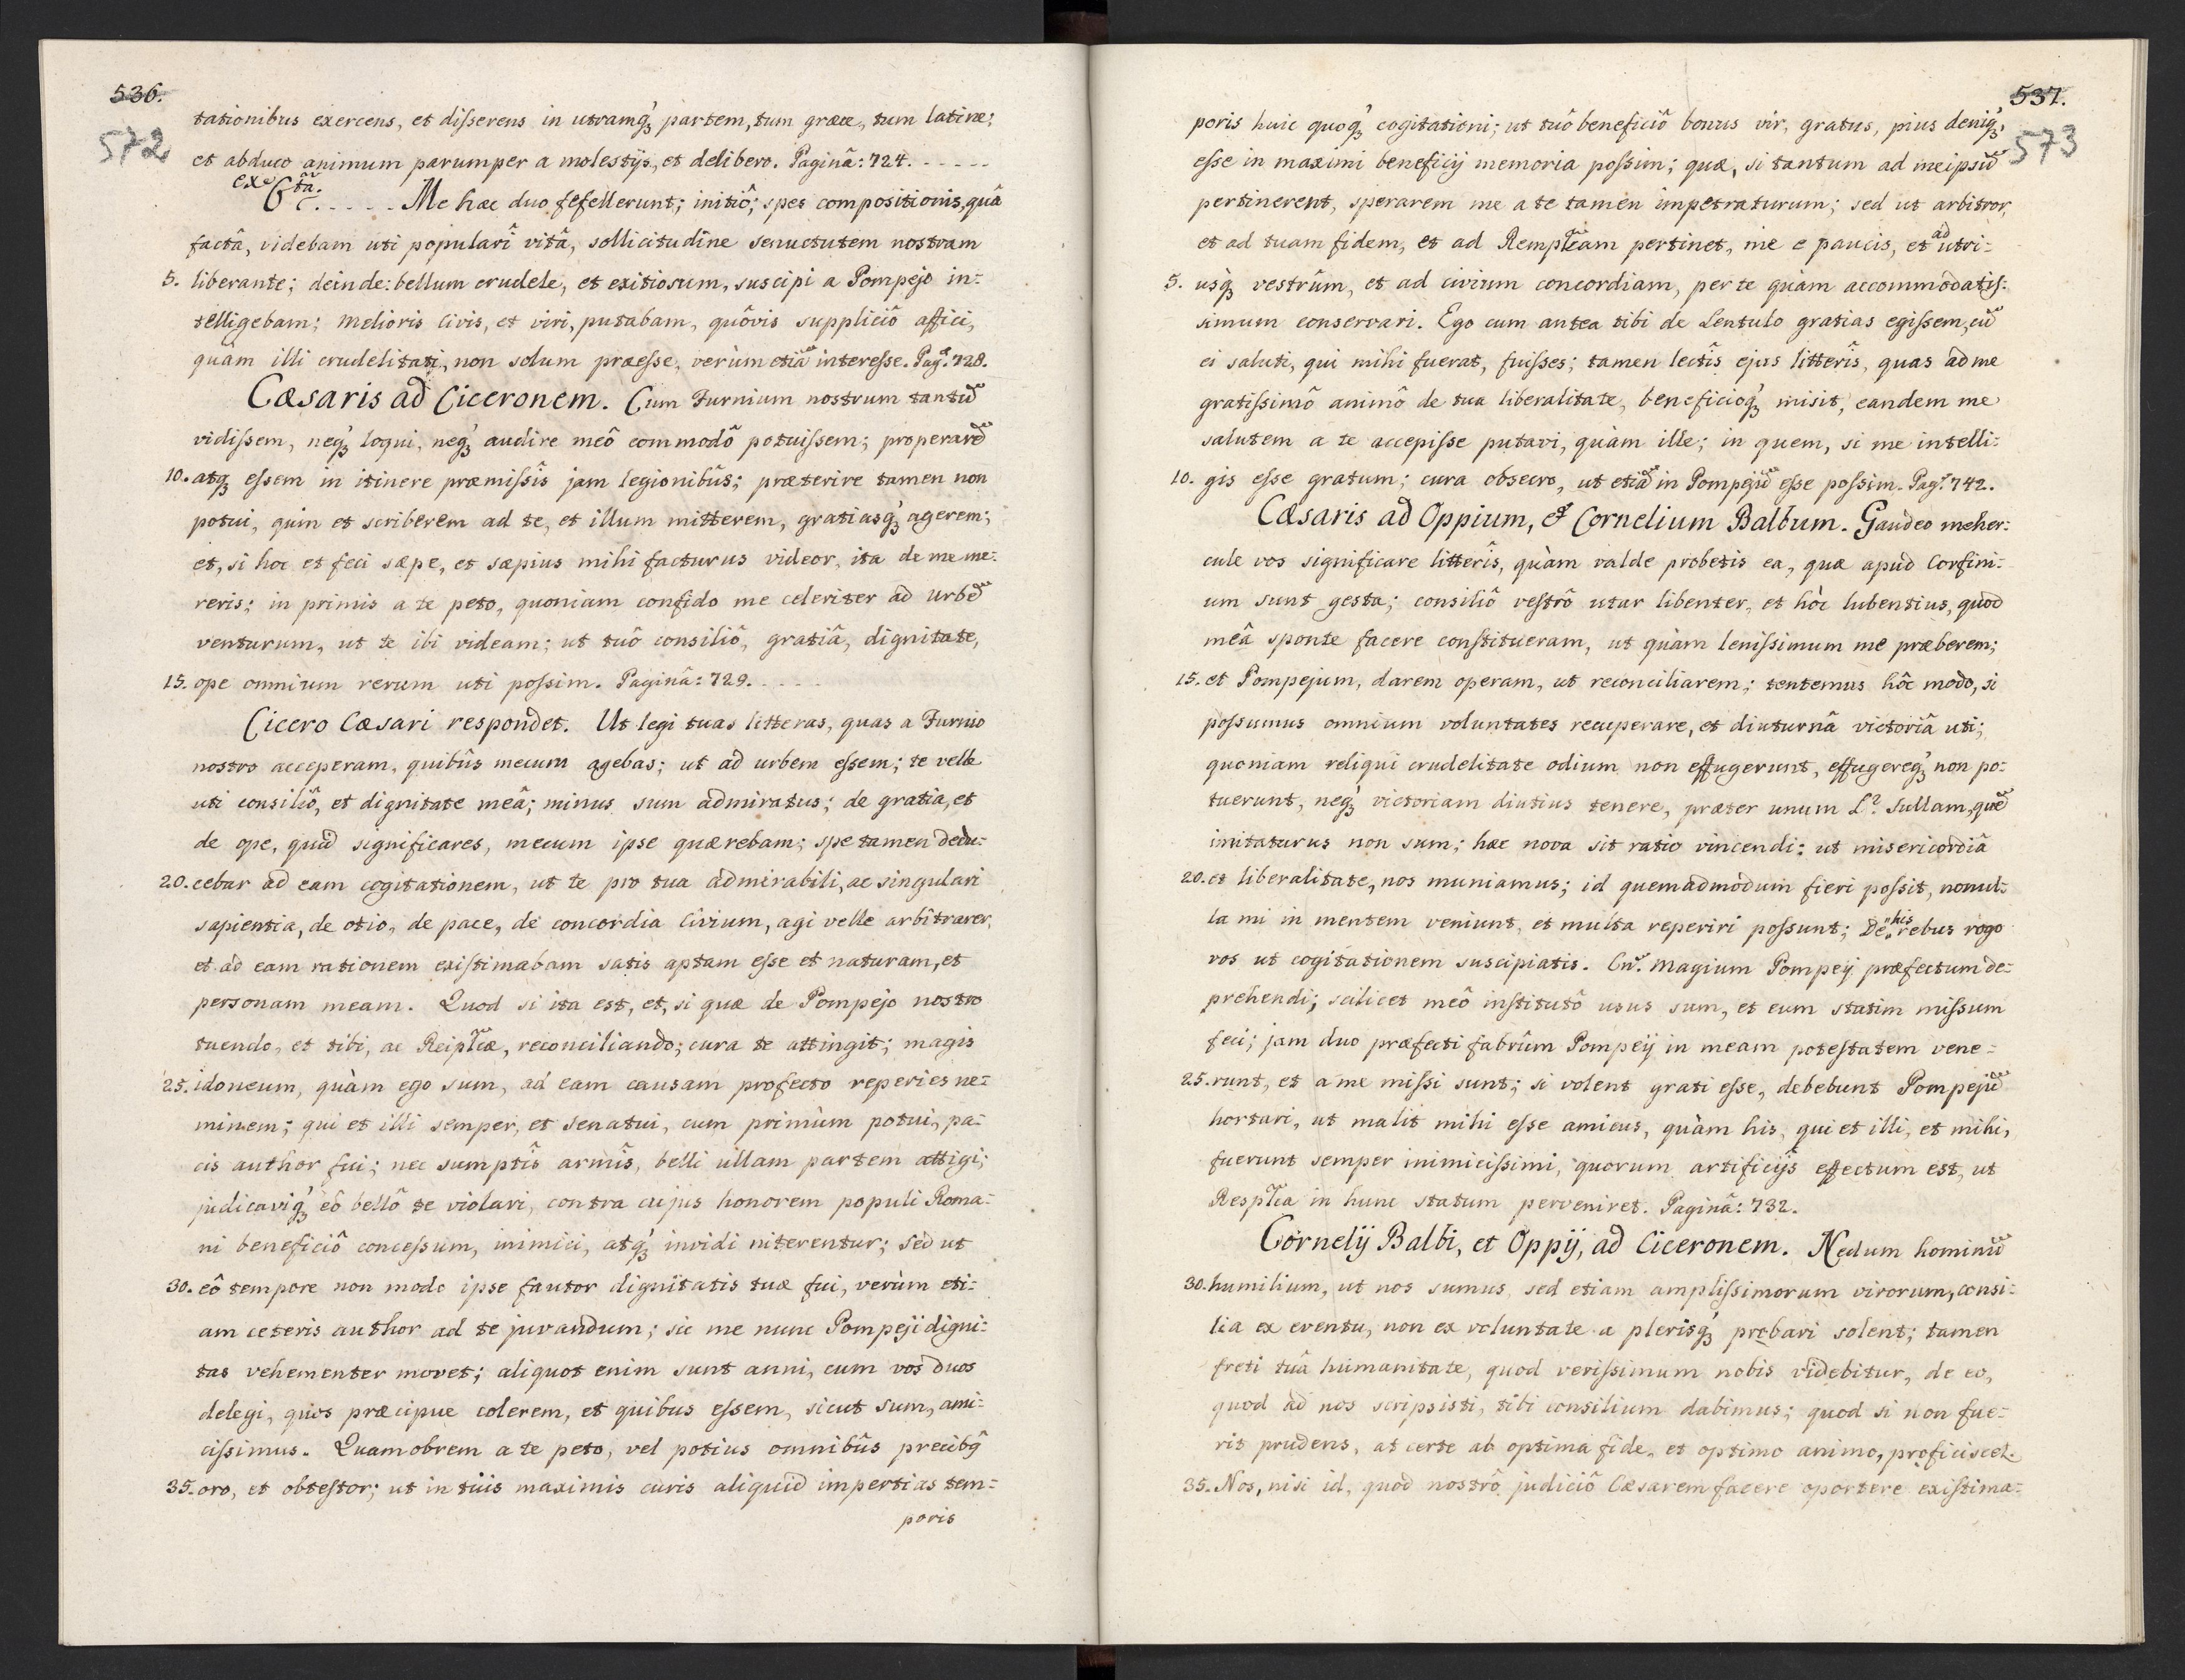 536.
572
tationibus exercens, et disserens in utramq́ꝫ partem, tum græce, tum latine;
et abduco animum parumper a molestijs, et delibero. Paginâ: 724. - - - - -
- - - - - Me hæc duo fefellerunt; initiô; spes compositionis, quâ
factâ, videbam uti populari vitâ, sollicitudine senuctutem nostram
5. liberante; deinde: bellum crudele, et exitiosum, suscipi a Pompejo in=
telligebam; melioris civis, et viri, putabam, quôvis suppliciô affici,
quam illi crudelitati, non solum præesse, verùm etiã interesse. Pag. 728.
Cæsaris ad Ciceronem. Cum Furnium nostrum tantũ
vidissem, neq́ꝫ loqui, neq́ꝫ audire meô commodô potuissem; properarẽ
10. atqꝫ essem in itinere præmissis jam legionibûs; præterire tamen non
potui, quin et scriberem ad te, et illum mitterem, gratiasq́ꝫ agerem;
et, si hoc et feci sæpe, et sæpius mihi facturus videor, ita de me me=
reris; in primis a te peto, quoniam confido me celeriter ad urbẽ
venturum, ut te ibi videam; ut tuô consiliô, gratiâ, dignitate,
15. ope omnium rerum uti possim. Paginâ: 729. - - - -
Cicero Cæsari respondet. Ut legi tuas litteras, quas a Furnio
nostro acceperam, quibûs mecum agebas; ut ad urbem essem; te velle
uti consiliô, et dignitate meâ; minus sum admiratus; de gratia, et
de ope, quid significares, mecum ipse quærebam; spe tamen dedu=
20. cebar ad eam cogitationem, ut te pro tua admirabili, ac singulari
sapientia, de otio, de pace, de concordia civium, agi velle arbitrarer,
et ad eam rationem existimabam satis aptam esse et naturam, et
personam meam. Quod si ita est, et, si quæ de Pompejo nostro
tuendo, et tibi, ac Reiplĩcæ, reconciliando; cura te attingit; magis
25. idoneum, quàm ego sum, ad eam causam profecto reperies ne=
minem; qui et illi semper, et senatui, cum primùm potui, pa=
cis author fui; nec sumptîs armîs, belli ullam partem attigi;
judicaviq́ꝫ eô bellô te violari, contra cujus honorem populi Roma=
ni beneficiô concessum, inimici, atq́ꝫ invidi niterentur; sed ut
30. eô tempore non modo ipse fautor dignitatis tuæ fui, verùm eti=
am ceteris author ad te juvandum; sic me nunc Pompeji digni=
tas vehementer movet; aliquot enim sunt anni, cum vos duos
delegi, quos præcipue colerem, et quibus essem, sicut sum, ami=
cissimus. Quamobrem a te peto, vel potius omnibûs precibꝗ
35. oro, et obtestor; ut in tuis maximis curis aliquid impertias tem=
poris
537.
573
poris huic quoq́ꝫ cogitationi; ut tuô beneficiô bonus vir, gratus, pius deniq́ꝫ,
esse in maximi beneficij memoria possim; quæ, si tantum ad meipsũ
pertinerent, sperarem me a te tamen impetraturum; sed ut arbitror,
et ad tuam fidem, et ad Remplĩcam pertinet, me e paucis, et ad utri=
5. usqꝫ vestrûm, et ad civium concordiam, per te quàm accommodatis=
simum conservari. Ego cum antea tibi de Lentulo gratias egissem, cũ
ei saluti, qui mihi fuerat, fuisses; tamen lectîs ejus litterîs, quas ad me
gratissimô animô de tua liberalitate, beneficioq́ꝫ misit, eandem me
salutem a te accepisse putavi, quàm ille; in quem, si me intelli=
10. gis esse gratum; cura obsecro, ut etiã in Pompejũ esse possim. Pag. 742.
Cæsaris ad Oppium, et Cornelium Balbum. Gaudeo meher=
cule vos significare litterîs, quàm valde probetis ea, quæ apud Corfini=
um sunt gesta; consiliô vestrô utar libenter, et hôc lubentius, quod
meâ sponte facere constitueram, ut quàm lenissimum me præberem;
15. et Pompejum, darem operam, ut reconciliarem; tentemus hôc modo, si
possumus omnium voluntates recuperare, et diuturnâ victoriâ uti;
quoniam reliqui crudelitate odium non effugerunt, effugereq́ꝫ non po=
tuerunt, neq́ꝫ victoriam diutius tenere, præter unum L. Sullam, quẽ
imitaturus non sum; hæc nova sit ratio vincendi: ut misericordiâ
20. et liberalitate, nos muniamus; id quemadmodum fieri possit, nonul=
la mi in mentem veniunt, et multa reperiri possunt; De his rebus rogo
vos ut cogitationem suscipiatis. Cn. Magium Pompeij præfectum de=
prehendi; scilicet meô institutô usus sum, et eum statim missum
feci; jam duo præfecti fabrûm Pompeij in meam potestatem vene=
25. runt, et a me missi sunt; si volent grati esse, debebunt Pompejũ
hortari, ut malit mihi esse amicus, quàm his, qui et illi, et mihi,
fuerunt semper inimicissimi, quorum artificijs effectum est, ut
Resplĩca in hunc statum perveniret. Paginâ: 732.
Cornelij Balbi, et Oppij, ad Ciceronem. Nedum hominũ
30. humilium, ut nos sumus, sed etiam amplissimorum virorum, consi=
lia ex eventu, non ex voluntate a plerisq́ꝫ probari solent; tamen
freti tuâ humanitate, quod verissimum nobis videbitur, de eo,
quod ad nos scripsisti, tibi consilium dabimus; quod si non fue=
rit prudens, at certe ab optima fide, et optimo animo, proficiscet.
35. Nos, nisi id, quod nostrô judiciô Cæsarem facere oportere existima=